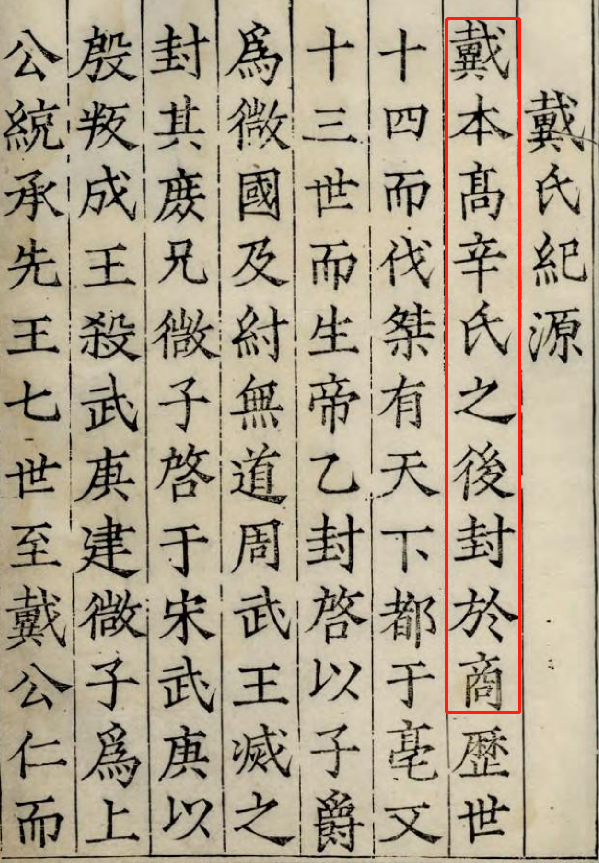 戴氏紀源
戴本髙辛氏之後封於商歷世
十四而伐桀有天下都于亳又
十三世而生帝乙封啓以子爵
爲微國及紂無道周武王滅之
封其庶兄微子啓于宋武庚以
殷叛成王殺武庚建微子爲上
公統承先王七世至戴公仁而